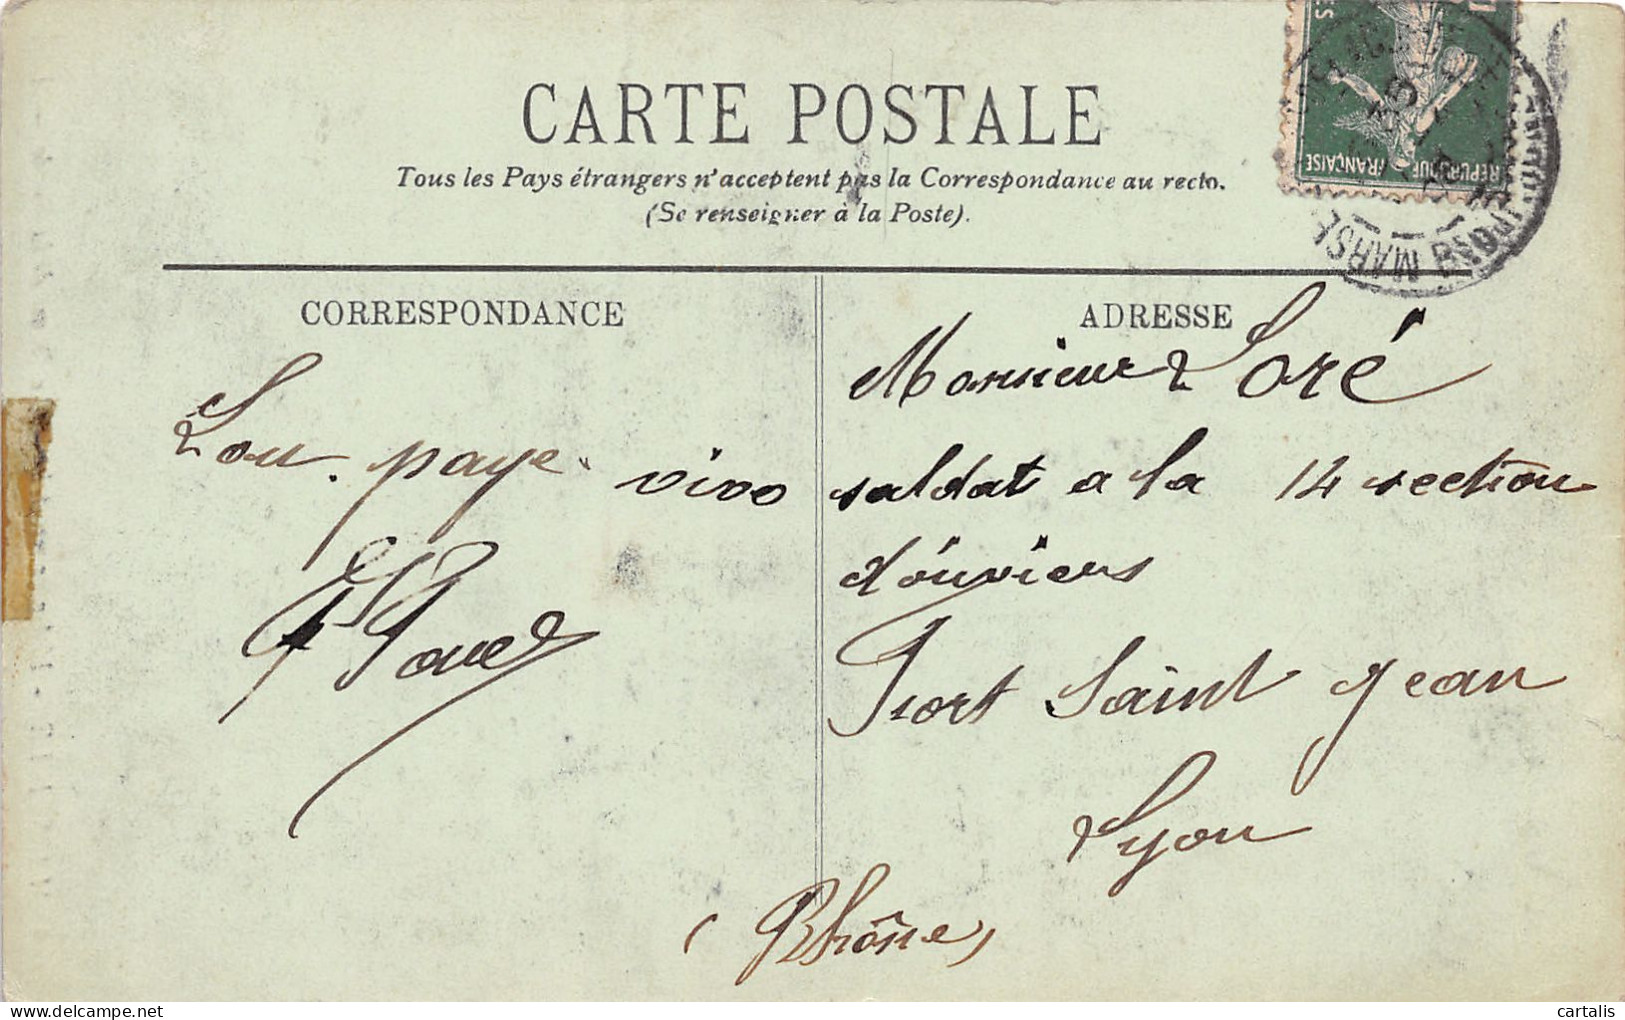 CARTE POSTALE
Tous les Pays étrangers n'acceptent pas la Correspondance au recto.
(Se renseigner à la Poste).
RÉPUBLIQUE FRANÇAISE
MARSE
CORRESPONDANCE
Lou paye vivo
ADRESSE
Monsieur Loré
soldat a la 14 section
d'ouvriers
Fort Saint Jean
Lyon
(Rhône)
www.delcampe.net
cartalis